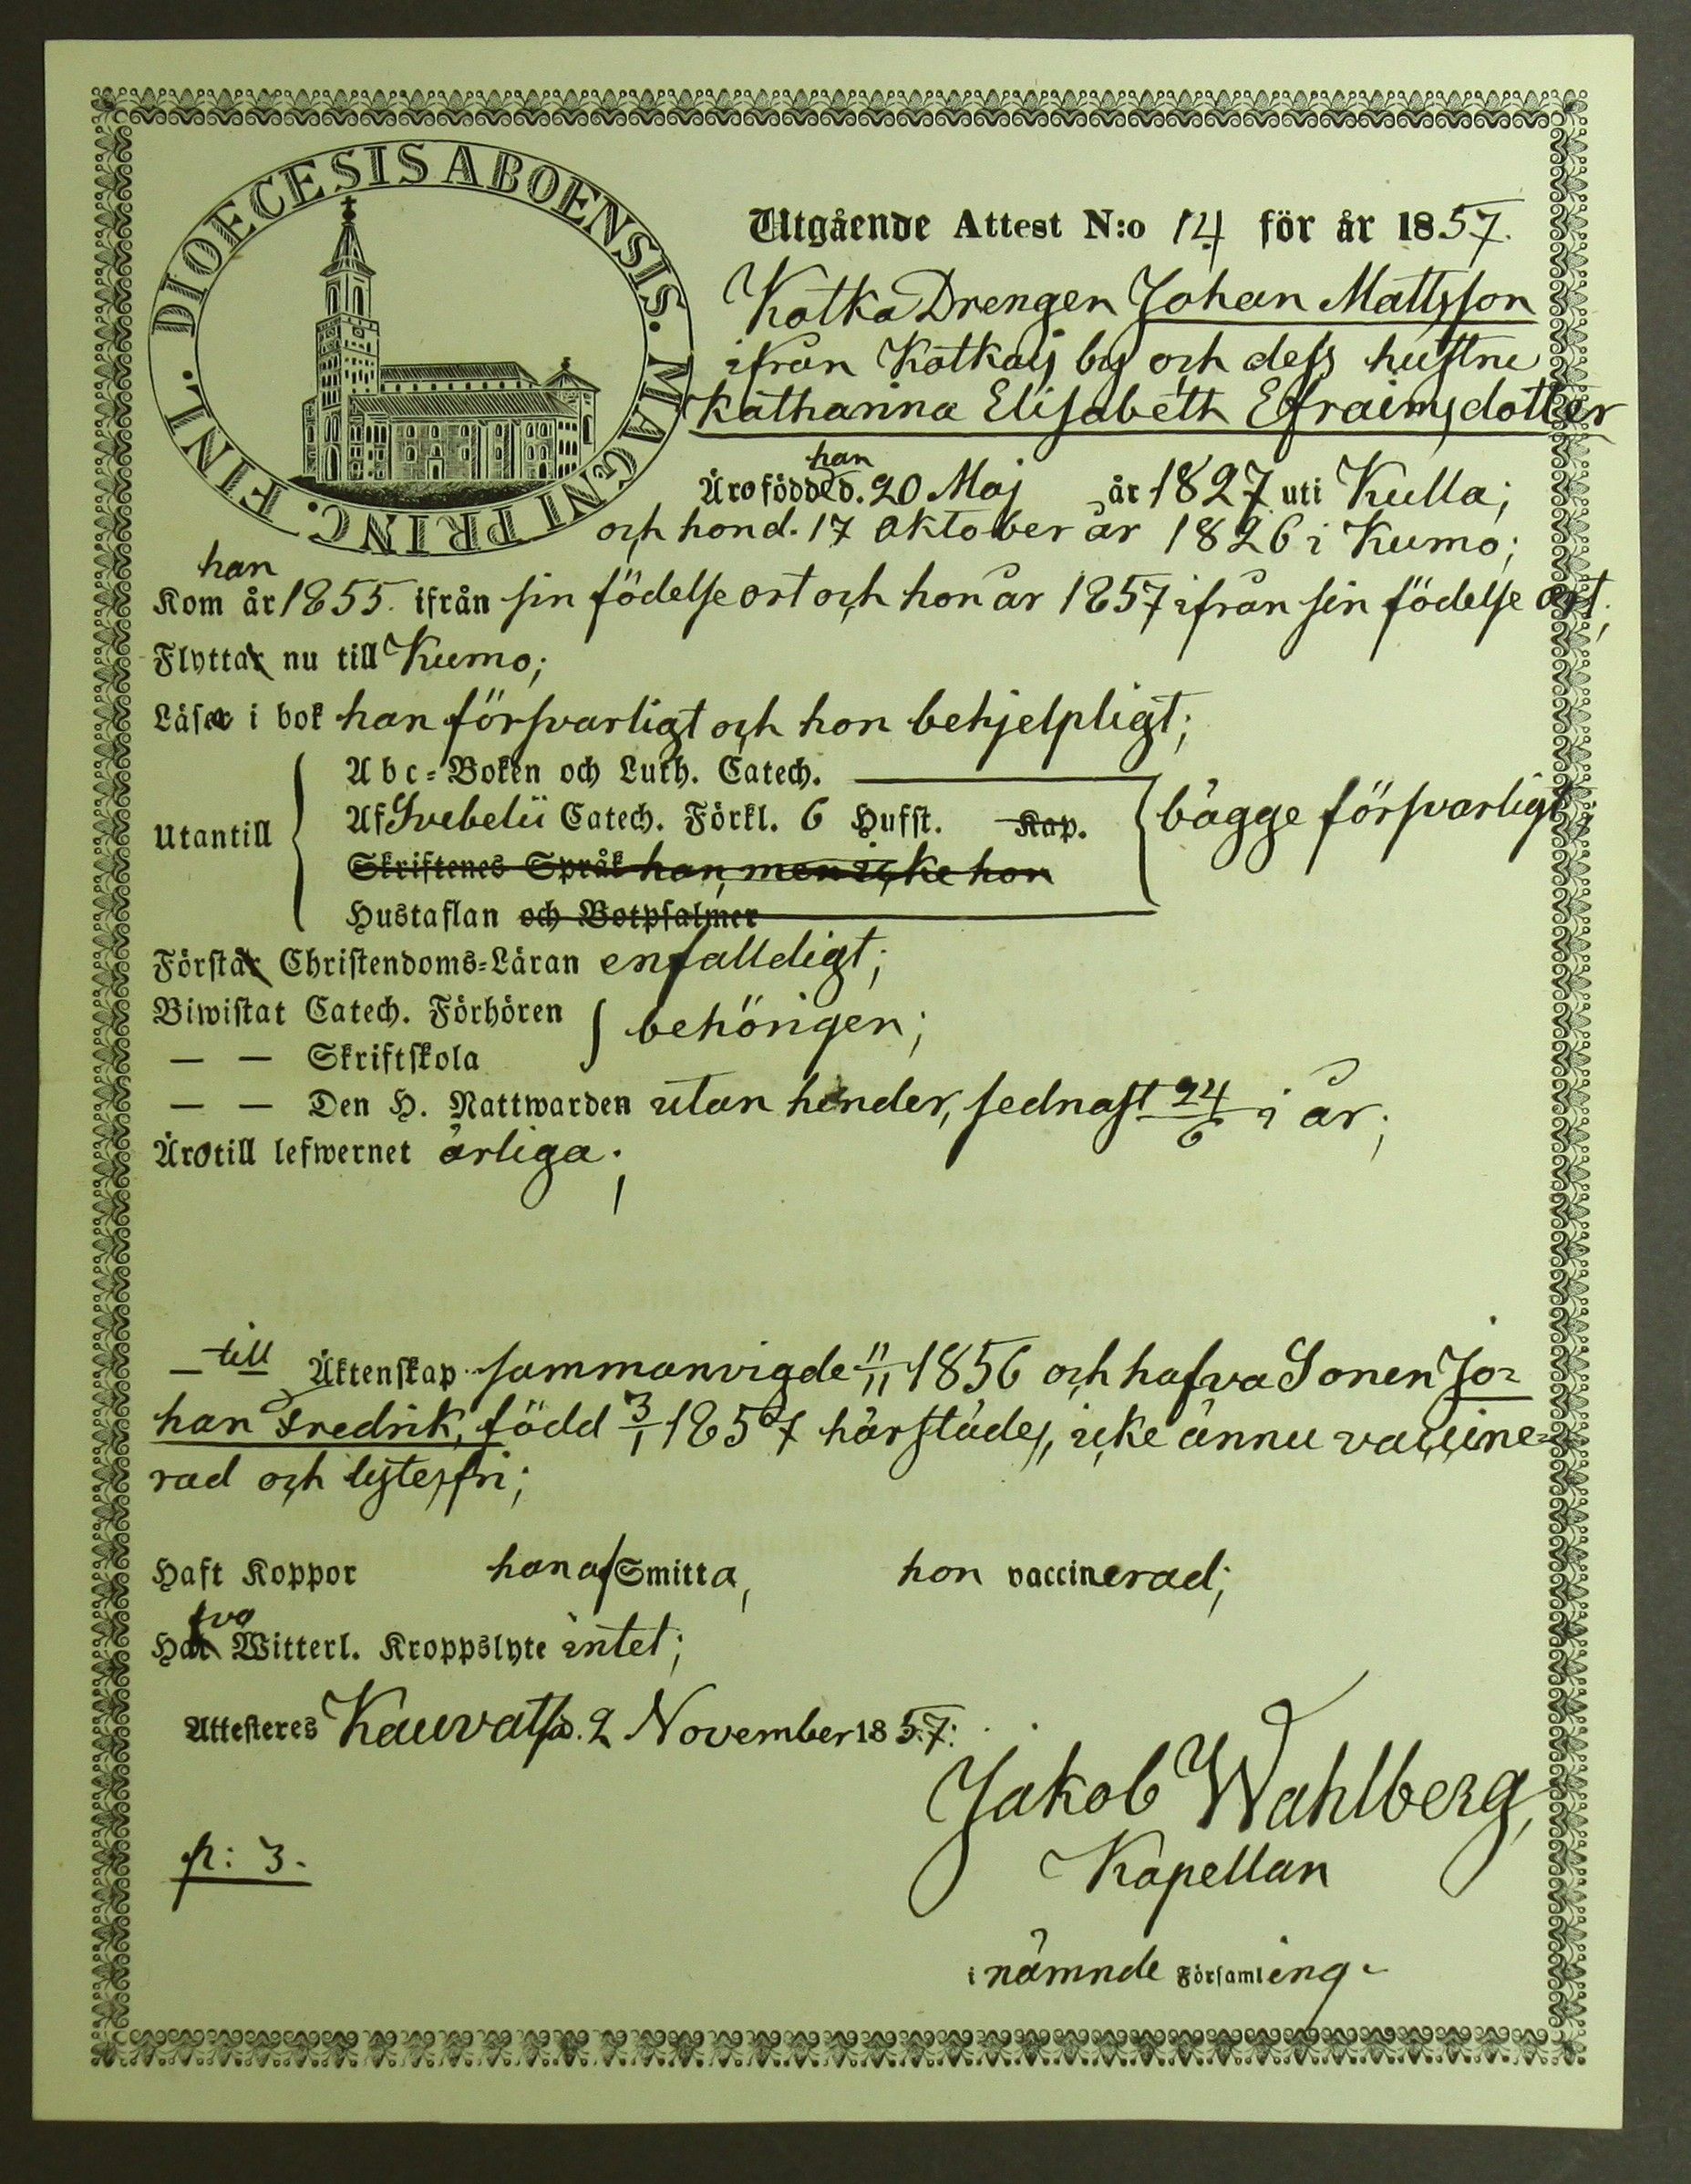 DIOECESIS ABOENSIS. MAGNI PRINC. FINL.
Utgående Attest N:o 14 för år 1857.
Kotka Drengen Johan Mattsson
ifrån Kotkais by och dess hustru
Katharina Elisabeth Efraimsdotter
han
Äro födde d. 20 Maj år 1827 uti Kulla;
och hon d. 17 Oktober år 1826 i Kumo;
han
Kom år 1855. ifrån sin födelse ort och hon år 1857 ifrån sin födelse ort;
Flytta nu till Kumo;
Läsa i bok han försvarligt och hon behjelpligt;
Abc-Boken och Luth. Catech.
Utantill Af Svebelii Catech. Förkl. 6 Hufst. Kap. bägge försvarligt;
Skriftenes Språk han, men icke hon
Hustaflan och Botpsalmer
Förstå Christendoms-Läran enfalldigt;
Biwistat Catech. Förhören behörigen;
— — Skriftskola
— — Den H. Nattwarden utan hinder, sednast 24/6 i år;
Äro till lefwernet ärliga;
— till Äktenskap sammanvigde 11/11 1856 och hafva Sonen Jo-
han Fredrik, född 3/1 1857 härstädes, icke ännu vaccine-
rad och lytesfri;
Haft Koppor han af Smitta, hon vaccinerad;
fva
Ha Witterl. Kroppslyte intet;
Attesteres Kauvatsa d. 2 November 1857:
Jakob Wahlberg,
Kapellan
p: 3.
i nämnde Församling